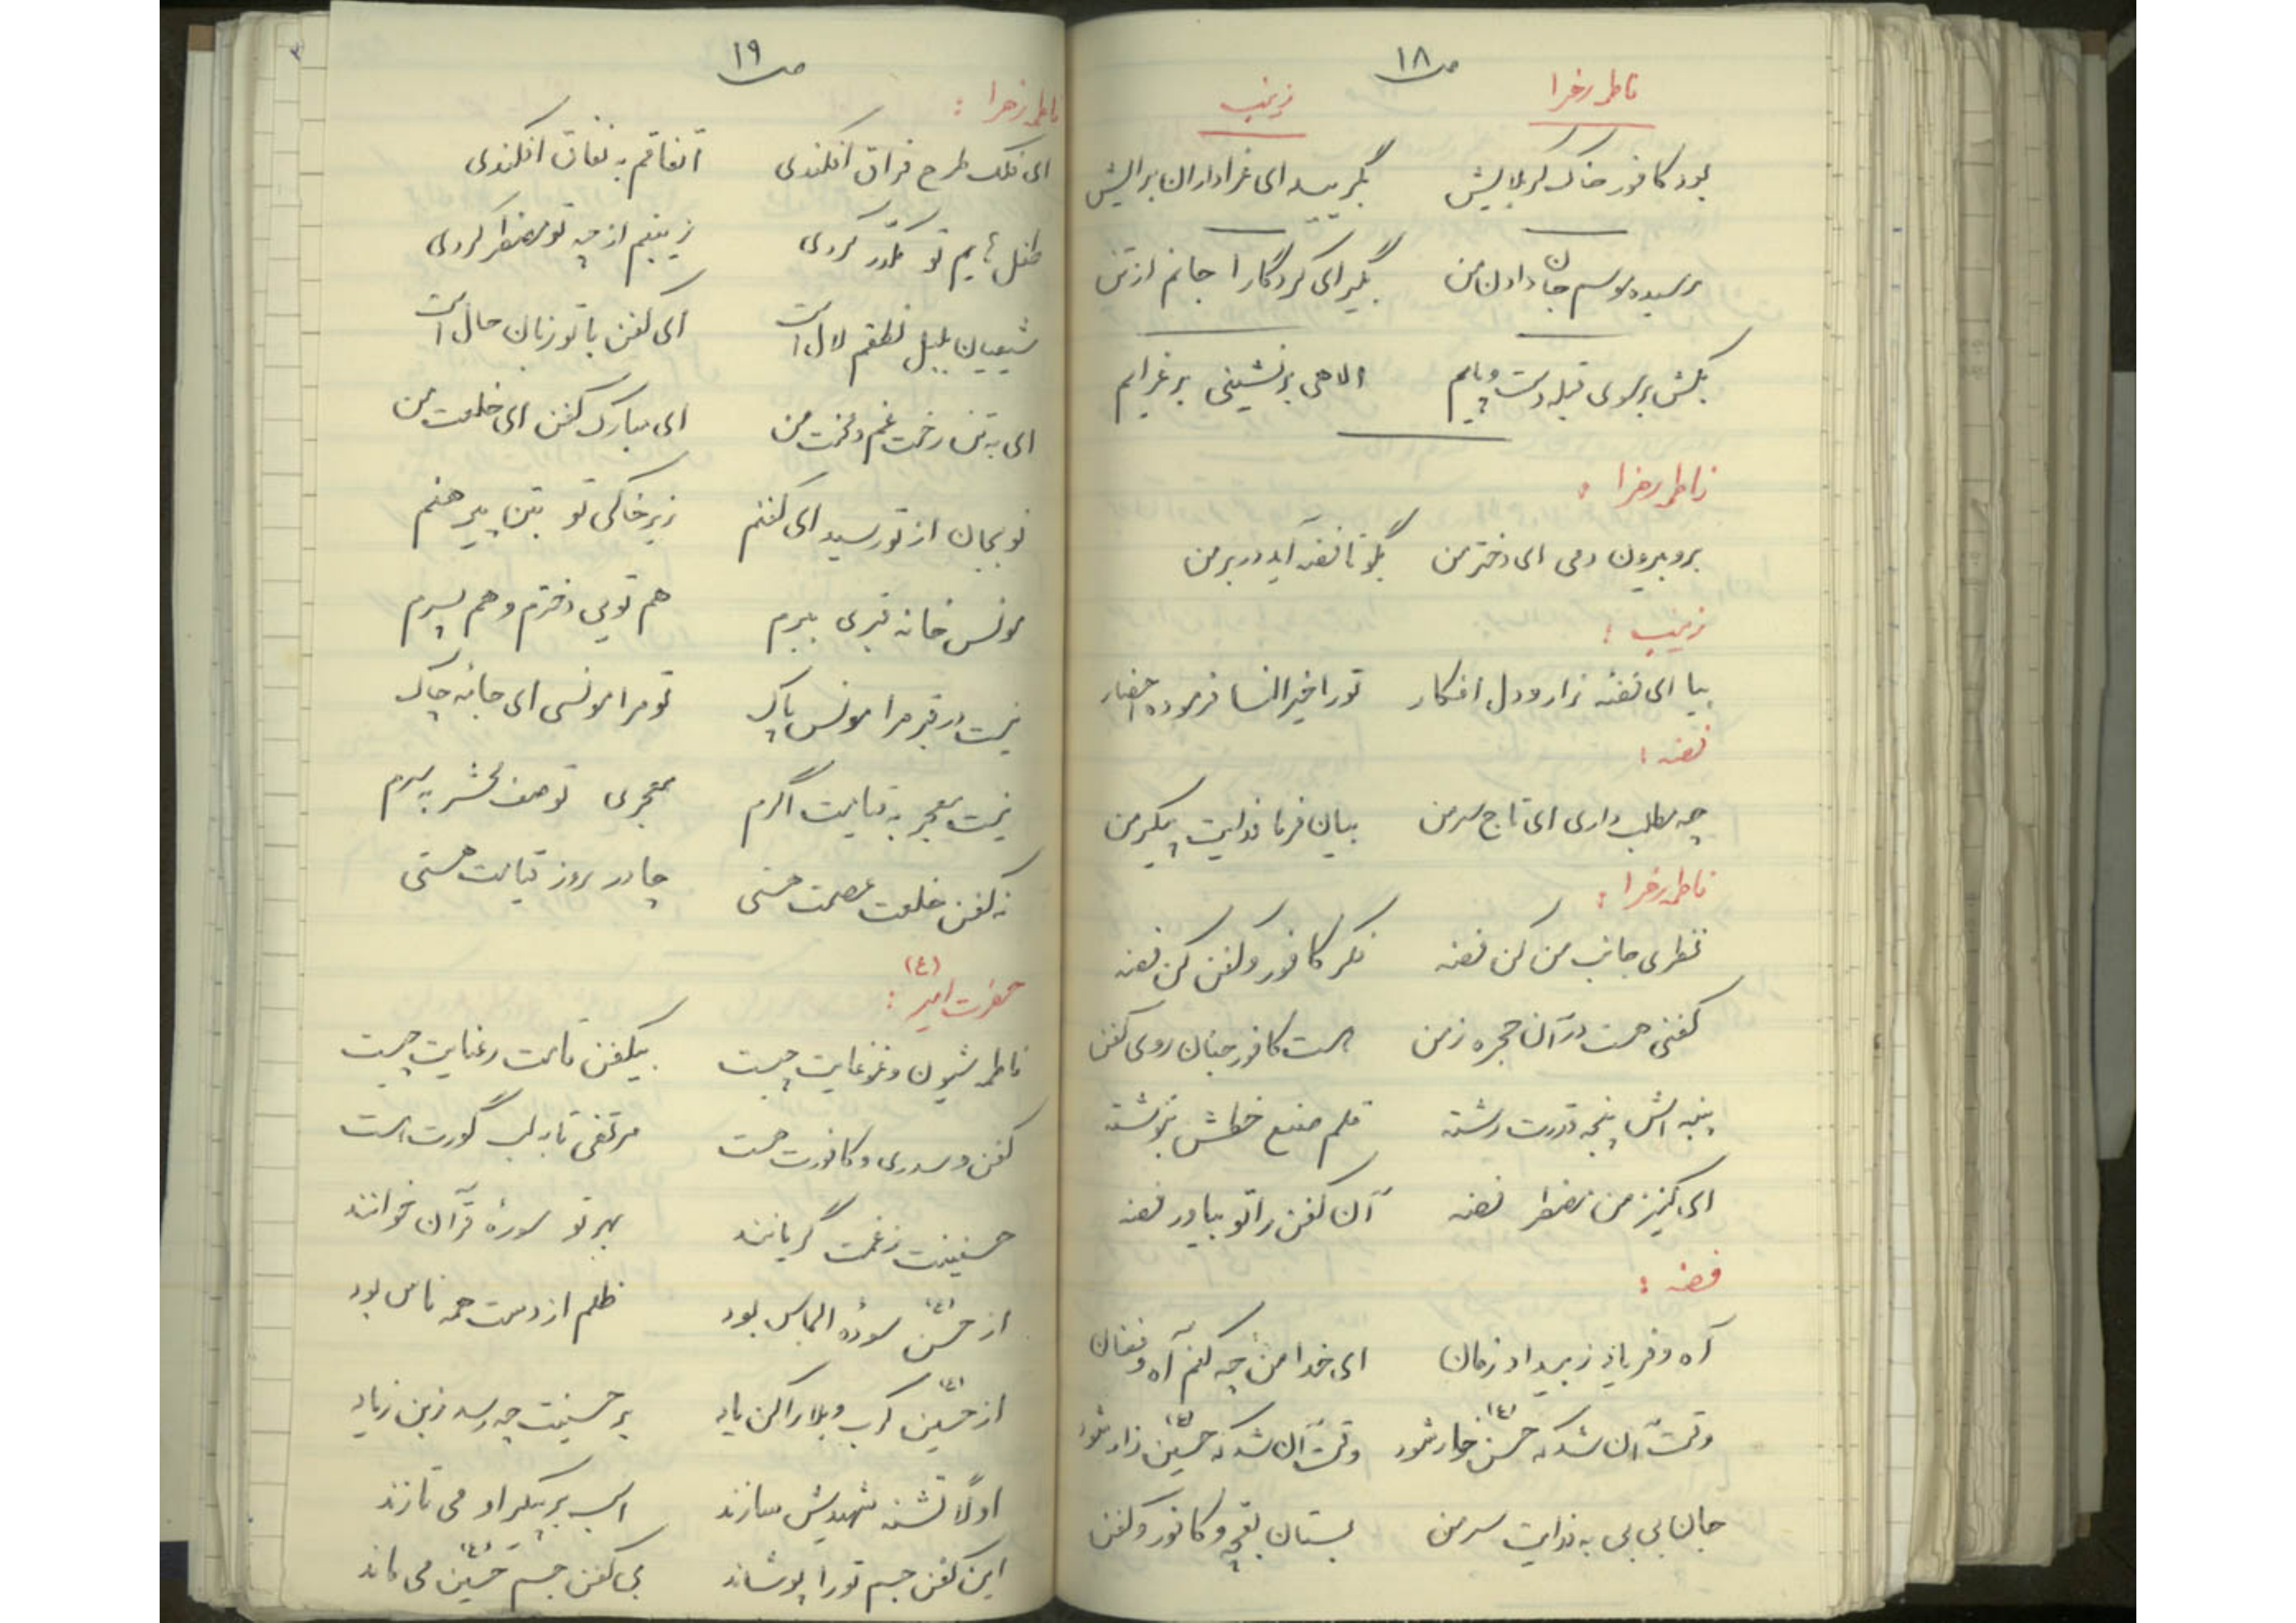 ص ۱۸
فاطمه زهرا    زینب
بود کافور خاک کربلایش    بگریید ای عزاداران برایش
رسیده موسم جان دادن من    بگیر ای کردگارا جانم از تن
بکش بر سوی قبله دست و پایم    الاهی بر نشینی بر عزایم
فاطمه زهرا :
برو بیرون دمی ای دختر من    بگو تا فضه آید در بر من
زینب :
بیا ای فضه زار و دل افکار    تو را خیر النسا فرموده احضار
فضه :
چه مطلب داری ای تاج سر من    بیان فرما فدایت پیکر من
فاطمه زهرا :
نظری جانب من کن فضه    فکر کافور و کفن کن فضه
کفنی هست در آن حجره ز من    هست کافور جنان روی کفن
پنبه اش پنجه قدرت رشته    قلم صنع خطاش بنوشته
ای کنیز من مضطر فضه    آن کفن را تو بیاور فضه
فضه :
آه و فریاد ز بیداد زمان    ای خدا من چه کنم آه و فغان
وقت آن شد که حسن (ع) خوار شود    وقت آن شد که حسین (ع) زار شود
جان بی بی به فدایت سر من    بستان بقچه و کافور و کفن
ص ۱۹
فاطمه زهرا :
ای فلک طرح فراق افکندی    اتفاقم به نفاق افکندی
طفل هایم تو مکدر کردی    زینبم از چه تو مضطر کردی
شیعیان بلبل نطقم لال است    ای کفن با تو زبان حال است
ای به تن رخت غم و محنت من    ای مبارک کفن ای خلعت من
نو بجان از تو رسید ای کفنم    زیر خاکی تو بتن پیرهنم
مونس خانه قبری ببرم    هم تویی دخترم و هم پسرم
نیست در قبر مرا مونس پاک    تو مرا مونسی ای جامه چاک
نیست معجر به قیامت اگرم    معجری تو صف محشر به سرم
نه کفن خلعت عصمت هستی    چادر روز قیامت هستی
حضرت امیر (ع) :
فاطمه شیون و غوغایت چیست    بیکفن قامت رعنایت چیست
کفن و سدری و کافورت هست    مرتضی تا به لب گورت هست
حسنینت ز غمت گریانند    بهر تو سورهٔ قرآن خوانند
از حسن (ع) سودهٔ الماس بود    ظلم از دست همه ناس بود
از حسین (ع) کرب و بلا را کن یاد    بر حسینت چه رسد زین زیاد
اولاً تشنه شهیدش سازند    اسب بر پیکر او می تازند
این کفن جسم تو را پوشاند    بی کفن جسم حسین (ع) می ماند